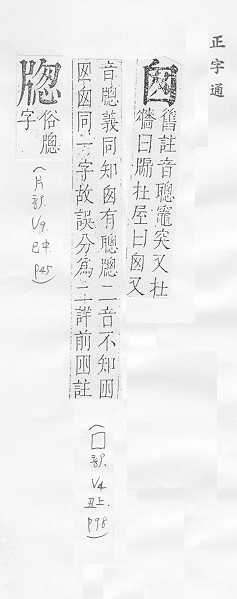 正字通
囱
舊註音聰竈突又扗
牆曰牖扗屋曰囱又
音牕義同知囱有聰牕二音不知囪
囪囱同一字故誤分為二詳前囪註
(囗部.V4.丑上.P98)
牎
俗牕
字
(片部.V9.巳中.P45)